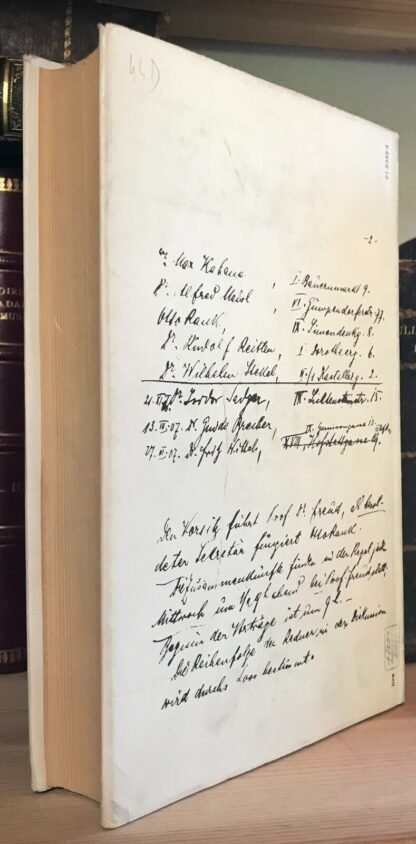 44D
-2-
Dr. Max Kahane
Dr. Alfred Meisl, I. Bauernmarkt 9.
Otto Rank, VI. Gumpendorferstr.
Dr. Rudolf Reitler, IX. Simondenkg. 8.
Dr. Wilhelm Stekel, I. Dorotheerg. 6.
II/1 Kastellezg. 2.
Dr. Isidor Sadger, IX. Lichtensteinstr. 15.
13. II. 07. Dr. Guido Brecher,
27. II. 07. Dr. Fritz Wittels,
Den Vorsitz führt Prof. Dr. Freud, als besol-
deter Sekretär fungiert Otto Rank.
Die Zusammenkünfte finden in der Regel jeden
Mittwoch um ½ 9 h abend bei Prof. Freud statt;
Beginn der Vorträge ist um 9 h. —
Die Reihenfolge der Redner in der Diskussion
wird durchs Loos bestimmt.